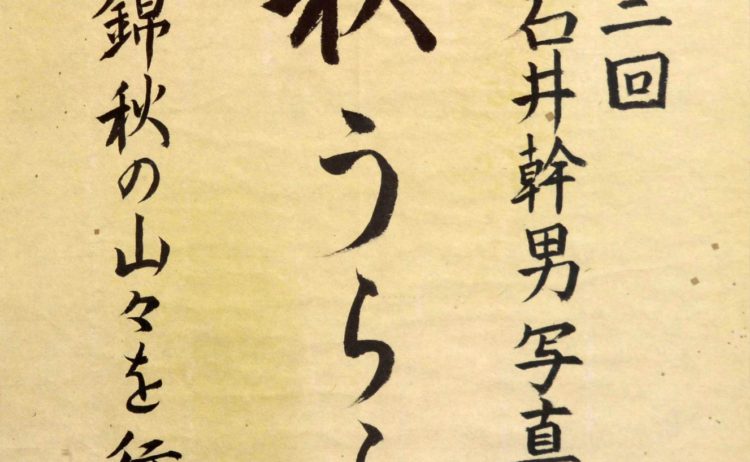 二回
石井幹男写真
秋うら
錦秋の山々を